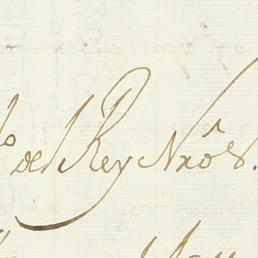 del Rey Nrõ S.